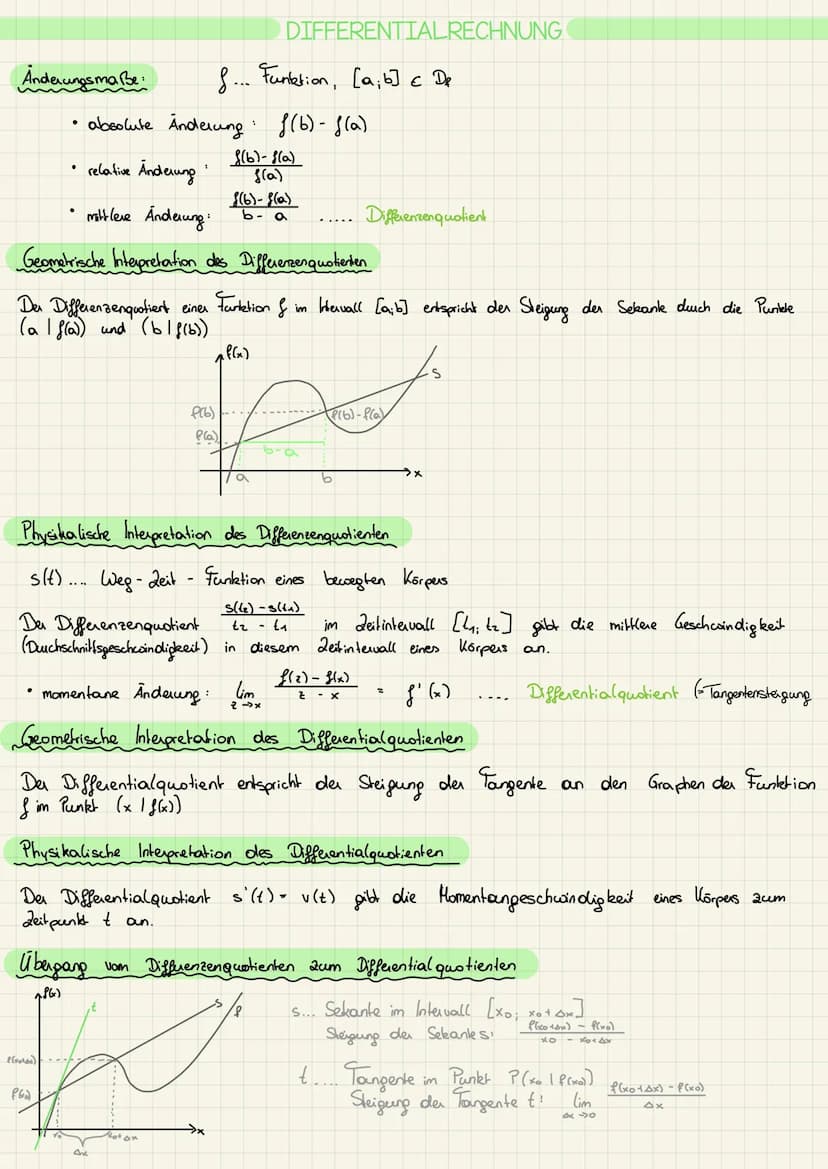 DIFFERENTIALRECHNUNG
Änderungsmaße: f... Funktion, [a;b] ∈ Df
• absolute Änderung: f(b) - f(a)
• relative Änderung: (f(b) - f(a)) / f(a)
• mittlere Änderung: (f(b) - f(a)) / (b - a) ..... Differenzenquotient
Geometrische Interpretation des Differenzenquotienten
Der Differenzenquotient einer Funktion f im Intervall [a;b] entspricht der Steigung der Sekante durch die Punkte
(a | f(a)) und (b | f(b))
f(x)
s
f(b)
f(b)-f(a)
f(a)
b-a
a
b
x
Physikalische Interpretation des Differenzenquotienten
s(t).... Weg - Zeit - Funktion eines bewegten Körpers
Der Differenzenquotient (s(t2) - s(t1)) / (t2 - t1) im Zeitintervall [t1; t2] gibt die mittlere Geschwindigkeit
(Durchschnittsgeschwindigkeit) in diesem Zeitintervall eines Körpers an.
• momentane Änderung: lim z→x (f(z) - f(x)) / (z - x) = f'(x) .... Differentialquotient (=Tangentensteigung
Geometrische Interpretation des Differentialquotienten
Der Differentialquotient entspricht der Steigung der Tangente an den Graphen der Funktion
f im Punkt (x | f(x))
Physikalische Interpretation des Differentialquotienten
Der Differentialquotient s'(t) = v(t) gibt die Momentangeschwindigkeit eines Körpers zum
Zeitpunkt t an.
Übergang vom Differenzenquotienten zum Differentialquotienten
f(x)
t
s
f
f(x0+Δx)
f(x0)
x0
x0+Δx
x
Δx
s... Sekante im Intervall [x0; x0+Δx]
Steigung der Sekante s: (f(x0+Δx) - f(x0)) / (x0 - x0+Δx)
t.... Tangente im Punkt P(x0 | f(x0))
Steigung der Tangente t: lim Δx→0 (f(x0+Δx) - f(x0)) / Δx